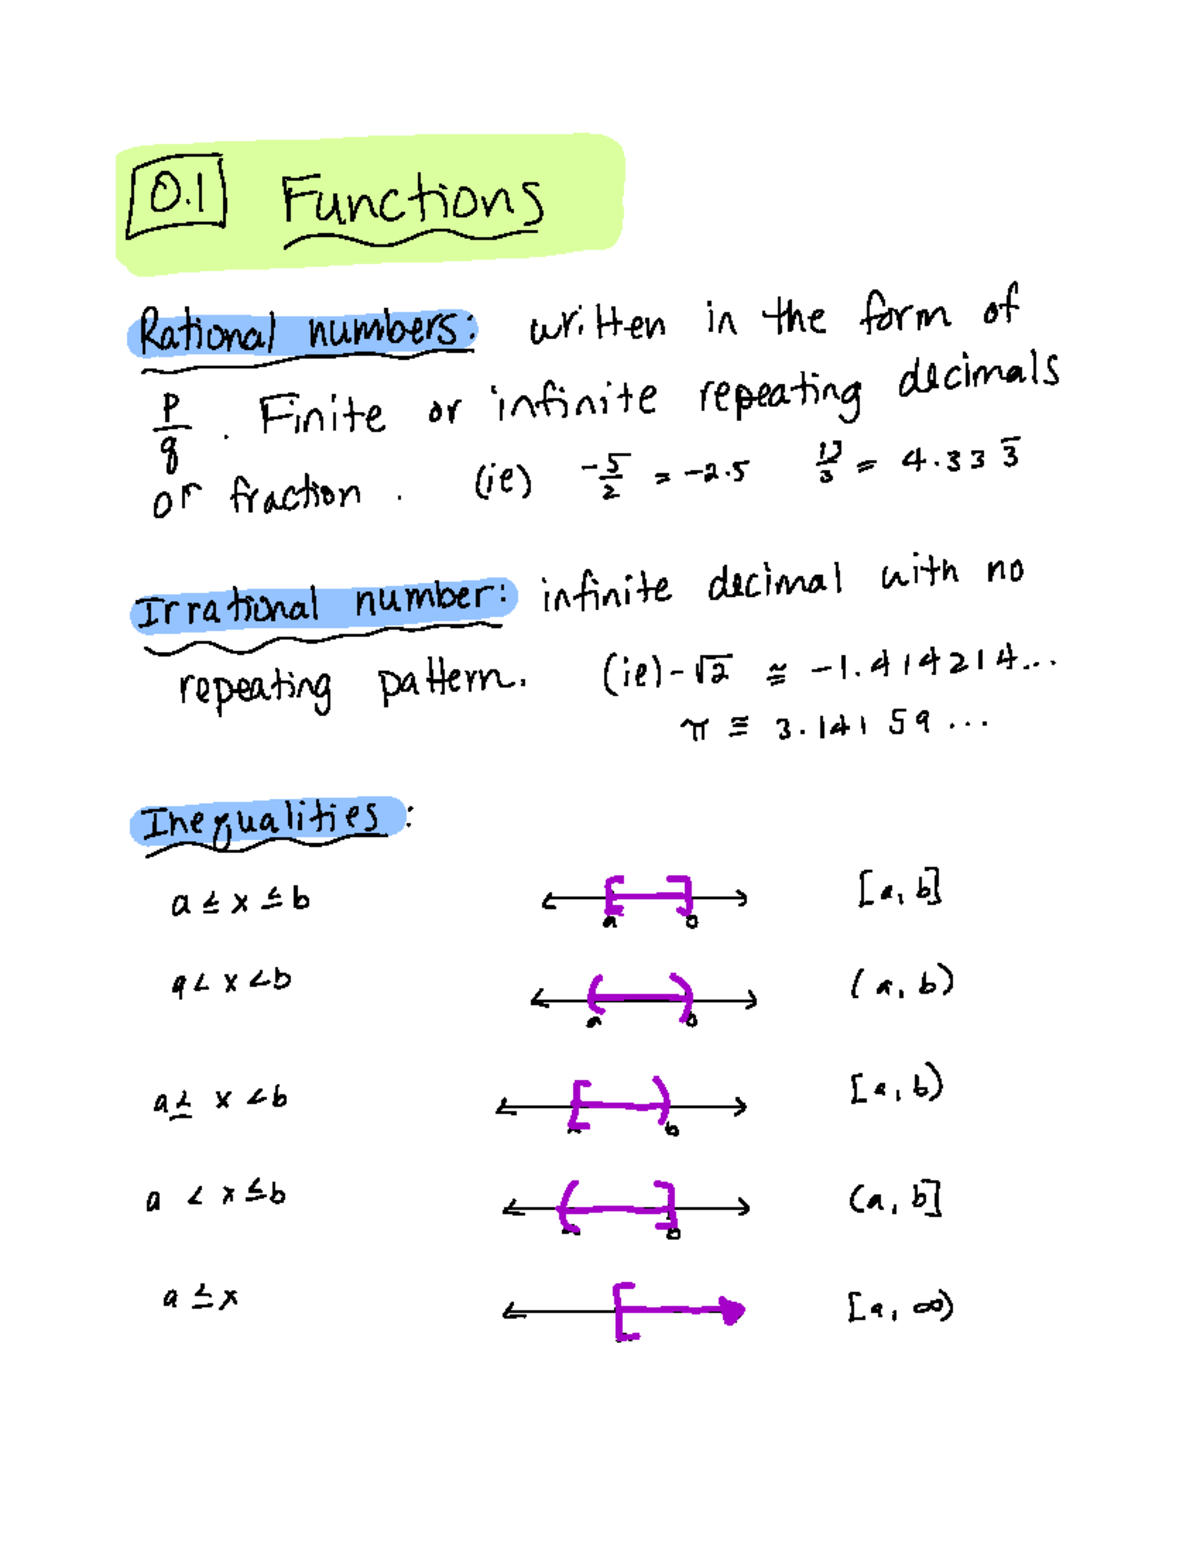 0.1 Functions
Rational numbers: written in the form of
p/q . Finite or infinite repeating decimals
or fraction . (ie) -5/2 = -2.5 13/3 = 4.333̅
Irrational number: infinite decimal with no
repeating pattern. (ie) -√2 ≅ -1.414214...
π ≅ 3.14159...
Inequalities:
a ≤ x ≤ b a b [a, b]
a < x < b a b (a, b)
a ≤ x < b b [a, b)
a < x ≤ b b (a, b]
a ≤ x [a, ∞)